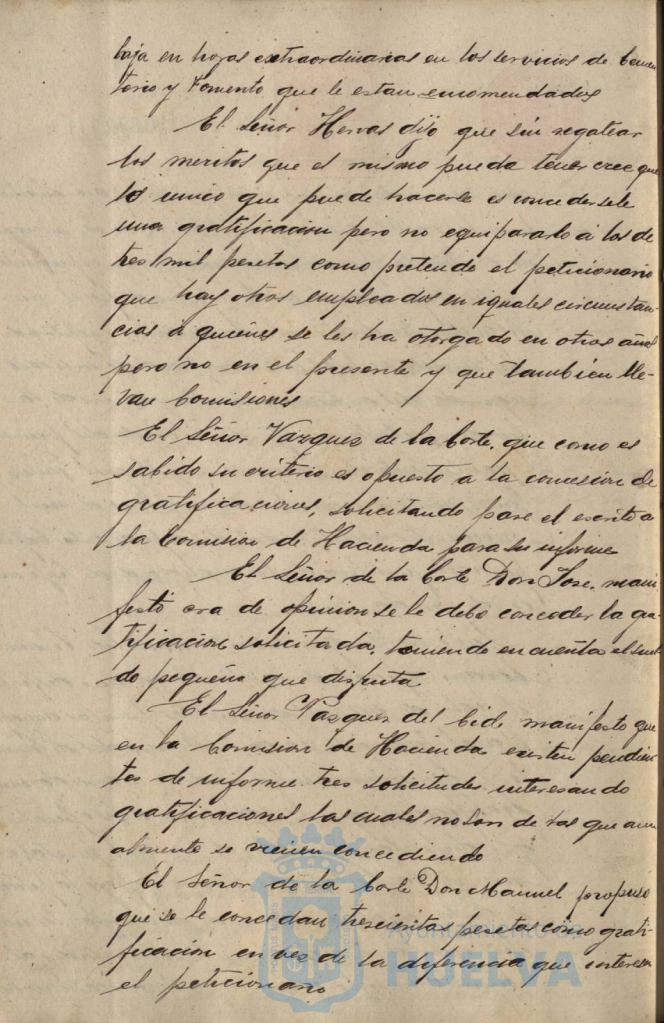 baja en horas extraordinarias en los servicios de Cemen
terio y Fomento que le estan encomendados
El Señor Hervas dijo que sin regatear
los meritos que el mismo pueda tener cree que
lo unico que puede hacerse es concedersele
una gratificacion pero no equipararlo á los de
tres mil pesetas como pretende el peticionario
que hay otros empleados en iguales circunstan-
cias a quienes se les ha otorgado en otros años
pero no en el presente y que tambien lle-
van Comisiones
El Señor Vazquez de la Corte, que como es
sabido su criterio es opuesto a la concesion de
gratificaciones, solicitando pase el escrito a
la Comision de Hacienda para su informe
El Señor de la Corte Don Jose, mani
festó era de opinion se le debe conceder la gra-
tificacion solicitada, teniendo en cuenta el suel
do pequeño que disfruta
El Señor Vazquez del Cid, manifesto que
en la Comision de Hacienda existen pendien
tes de informe tres solicitudes interesando
gratificaciones las cuales no son de las que anu
almente se vienen concediendo
El Señor de la Corte Don Manuel propuso
que se le concedan trescientas pesetas como grati-
ficacion en vez de la diferencia que interesa
el peticionario
Ayuntamiento de
HUELVA